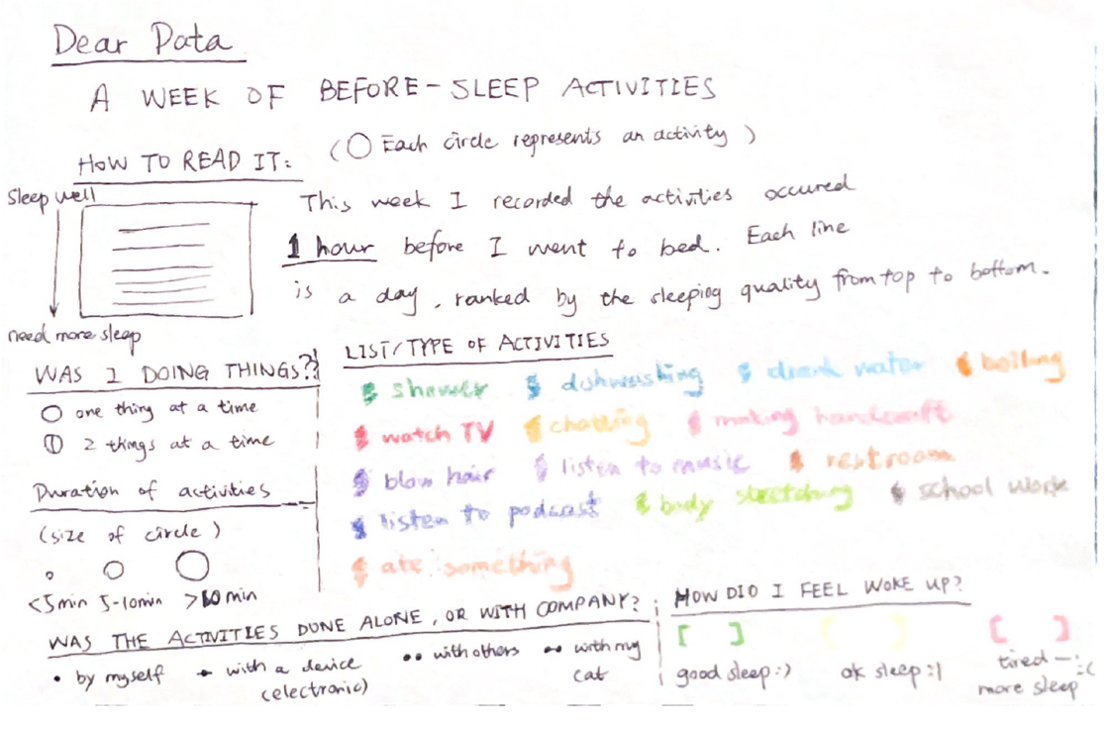 Dear Data
A WEEK OF BEFORE-SLEEP ACTIVITIES
(○ Each circle represents an activity)
HOW TO READ IT:
Sleep well
need more sleep
This week I recorded the activities occured
1 hour before I went to bed. Each line
is a day, ranked by the sleeping quality from top to bottom.
WAS I DOING THINGS?
one thing at a time
2 things at a time
Duration of activities
(size of circle)
<5min 5-10min >10 min
LIST/TYPE OF ACTIVITIES
shower dishwashing drank water boiling
watch TV chatting making handcraft
blow hair listen to music restroom
listen to podcast body stretching school work
ate something
WAS THE ACTIVITIES DONE ALONE, OR WITH COMPANY?
by myself with a device (electronic) with others with my cat
HOW DID I FEEL WOKE UP?
[ ] [ ] [ ]
good sleep :) ok sleep :| tired — :(
more sleep